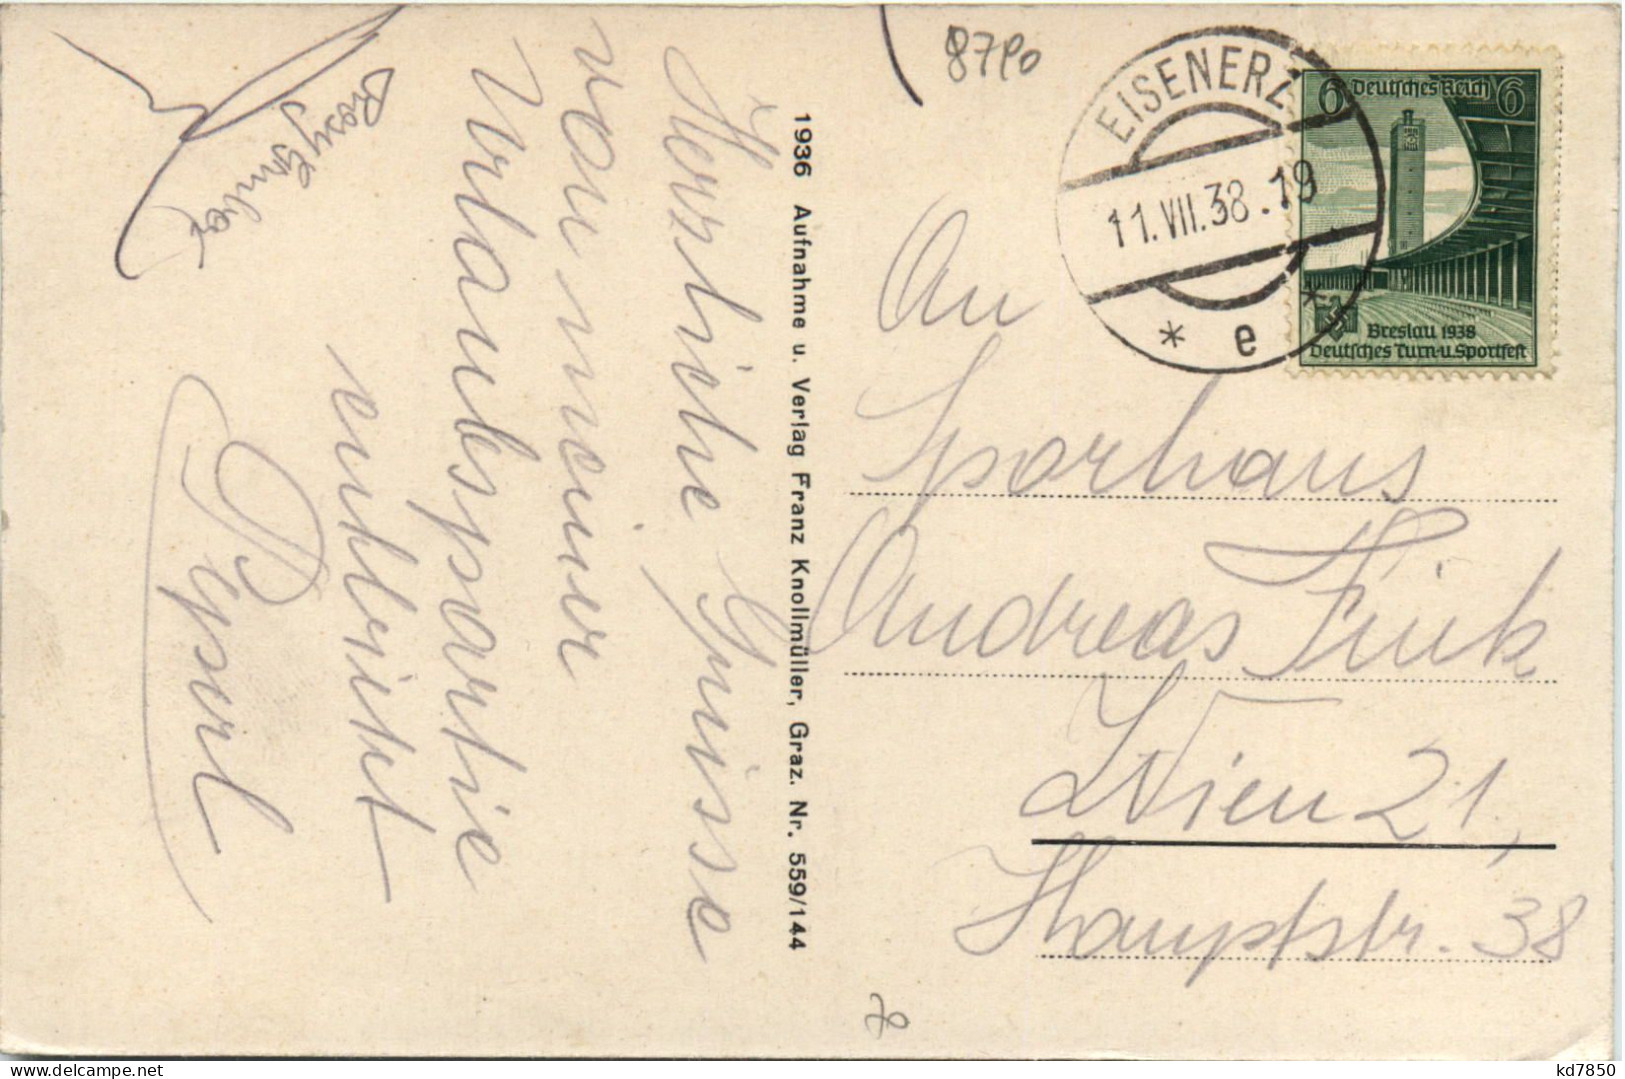 8790
EISENERZ
11.VII.38.19
* e *
6 Deutsches Reich 6
Breslau 1938
Deutsches Turn-u. Sportfest
An
Sporhaus
Andreas Fink
Wien 21,
Hauptstr. 38
1936 Aufnahme u. Verlag Franz Knollmüller, Graz. Nr. 559/144
Herzliche Grüsse
von meiner
Urlaubspartie
entbietet
Rosy
70
kd7850